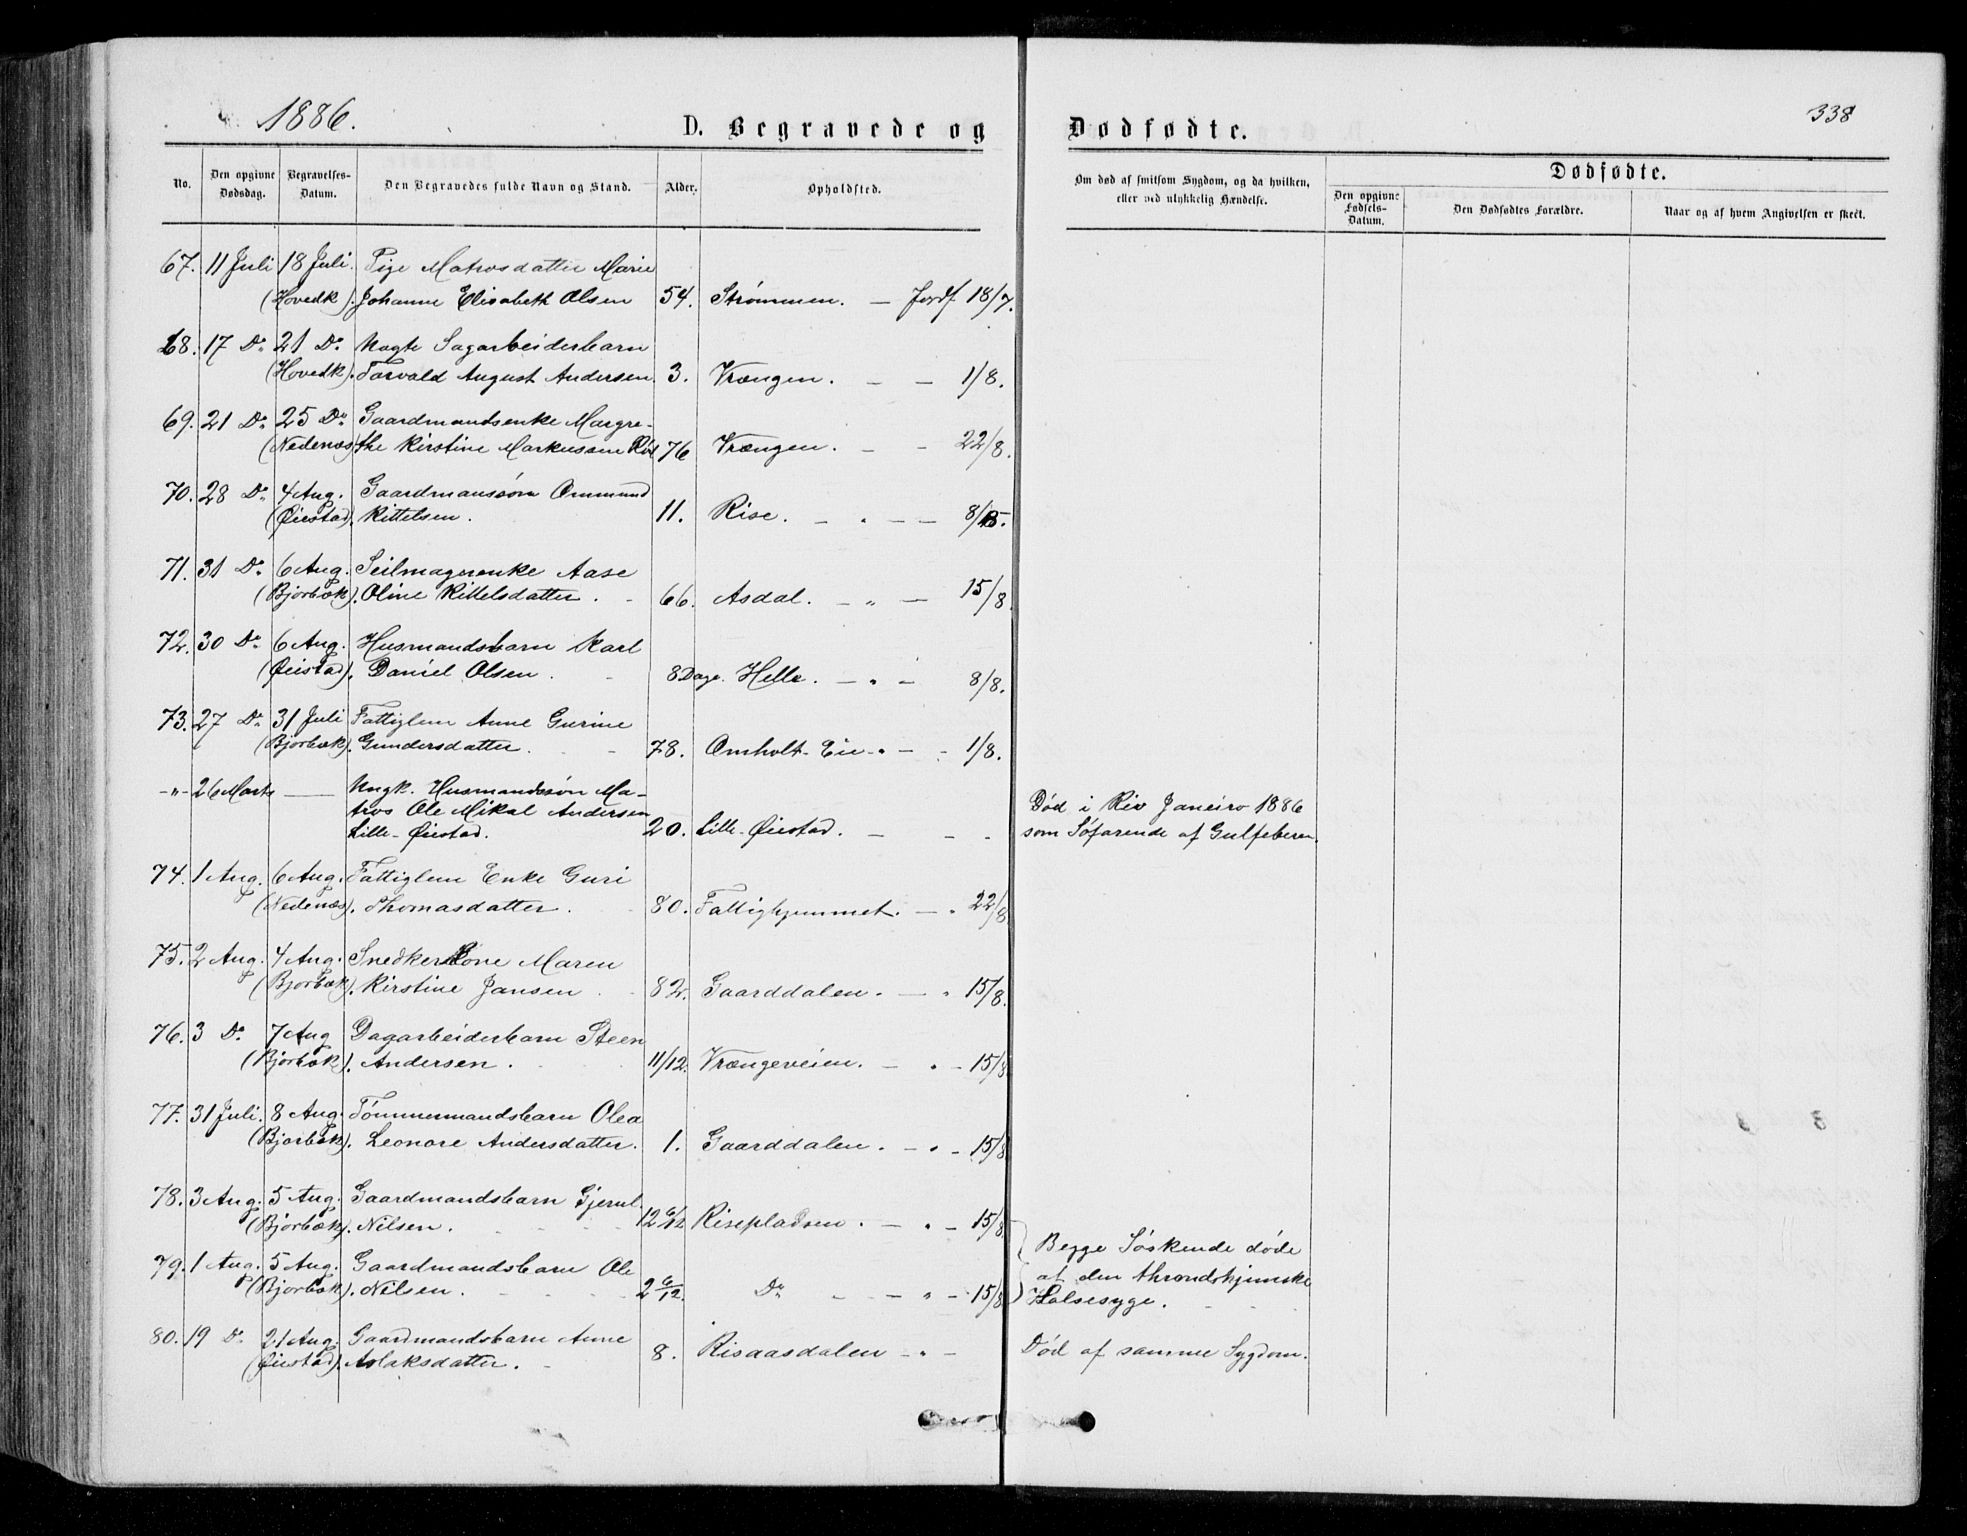 1886.
D. Begravede og Dødfødte.
338
No.
Den opgivne Dødsdag.
Begravelses-Datum.
Den Begravedes fulde Navn og Stand.
Alder.
Opholdsted.
Om død af smitsom Sygdom, og da hvilken, eller ved ulykkelig Hændelse.
Dødfødte.
Den opgivne Fødsels-Datum.
Den Dødfødtes Forældre.
Naar og af hvem Angivelsen er skeet.
67. 11 Juli 18 Juli. Pige Matrosdatter Marie
(Hovedk). Johanne Elisabeth Olsen 54. Strømmen. — Jordf. 18/7.
68. 17 Do 21 Do Nogte Sagarbeiderbarn
(Hovedk). Torvald August Andersen. 3. Vrængen. — — 1/8.
69. 21 Do 25 Do Gaardmandsenke Margre-
(Nedenæs) the Kirstine Markussen 76 Vrængen. — - 22/8.
70. 28 Do 4 Aug. Gaardmanssøn Ommund
(Øiestad). Kittelsen. 11. Rise. — — — 8/
71. 31 Do 6 Aug. Seilmagerenke Aase
(Bjorbæk). Oline Kittelsdatter. 66. Asdal. — " — 15/8
72. 30 Do 6 Aug. Husmandsbarn Karl
(Øiestad). Daniel Olsen. 8 Dage. Helle. — " — 8/8.
73. 27 Do 31 Juli Fattiglem Anne Gurine
(Bjorbæk). Gundersdatter. 78. Omholt-Eie - " — - 1/8.
-"- 26 Marts — Ungk. Husmandssøn Ma-
tros Ole Mikal Andersen Død i Rio Janeiro 1886
Lille-Øiestad. 20. Lille-Øiestad. — - - som Søfarende af Gulfeberen.
74. 1 Aug. 6 Aug. Fattiglem Enke Guri
(Nedenæs). Thomasdatter. 80. Fattighjemmet. — " 22/8
75. 2 Aug. 4 Aug. Snedkerkone Maren
(Bjorbæk). Kirstine Jansen 82. Gaarddalen. — " 15/8.
76. 3 Do 7 Aug Dagarbeiderbarn Steen
(Bjorbæk). Andersen. 11/12. Vrængeveien. — " - 15/8
77. 31 Juli. 8 Aug. Tømmermandsbarn Olea
(Bjorbæk). Leonore Andersdatter. 1. Gaarddalen. — " - 15/8
78. 3 Aug. 5 Aug. Gaardmandsbarn
(Bjorbæk). Nilsen. 12 6/12 Risepladsen. — " — 15/8
79. 1 Aug. 5 Aug. Gaardmandsbarn Ole Begge Søskende døde
(Bjorbæk). Nilsen. 2 6/12. Do — — " — 15/8 af den throndhjemske
Halsesyge.
80. 19 Do 21 Aug. Gaardmandsbarn Anne
(Øiestad). Aslaksdatter. 8. Risaasdalen — " — Død af samme Sygdom.